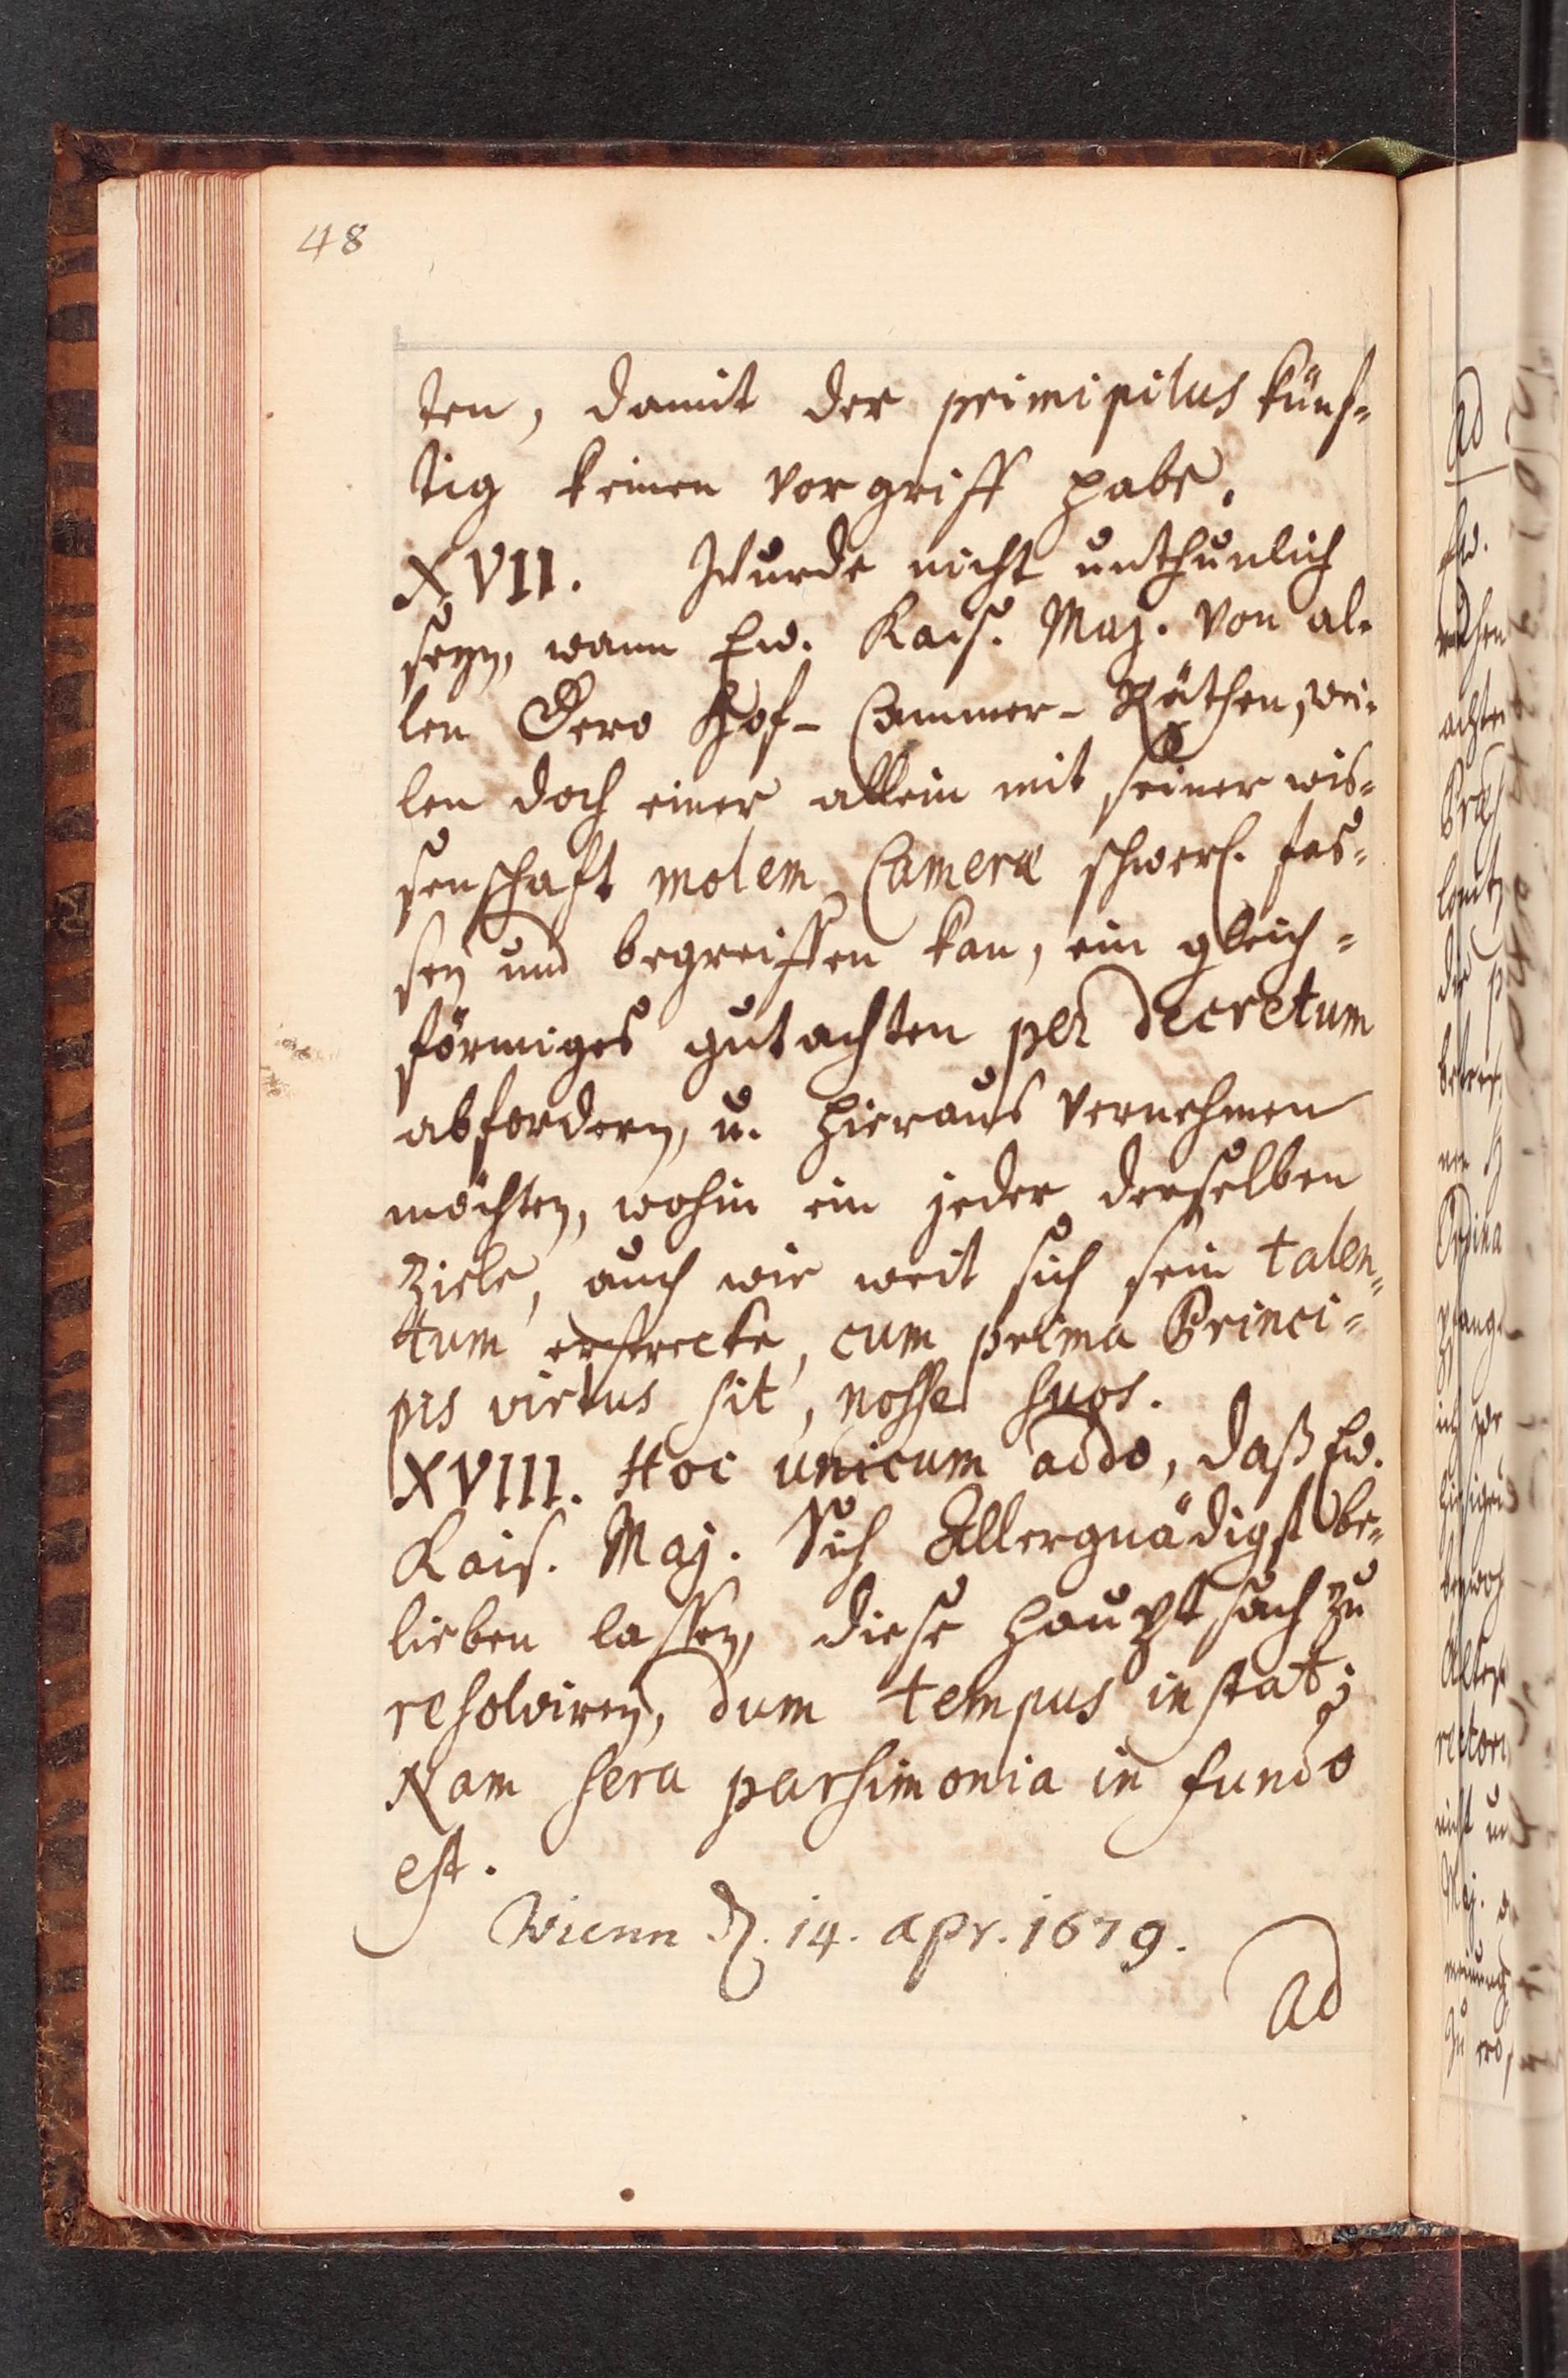 48
ten, damit der primipilus künf=
tig keinen vorgriff habe.
XVII. Wurde nicht unthunlich
seyn, wann Ew. Kais. Maj. von al=
len Dero Hof-Cammer-Räthen, wei=
len doch einer allein mit seiner wis=
senschaft molem Cameræ schwerl. fas=
sen und begreiffen kan, ein gleich=
förmiges gutachten per decretum
abfordern, u. hieraus vernehmen
möchten, wohin ein jeder derselben
ziele, auch wie weit sich sein talen=
tum erstrecke, cum prima Princi=
pis virtus sit, nosse suos.
XVIII. Hoc unicum addo, daß Ew.
Kais. Maj. Sich Allergnädigst be=
lieben lassen, diese hauptsach zu
resolviren, dum tempus instat;
Nam sera parsimonia in fundo
est.
Wienn d. 14. apr. 1679.
Ad